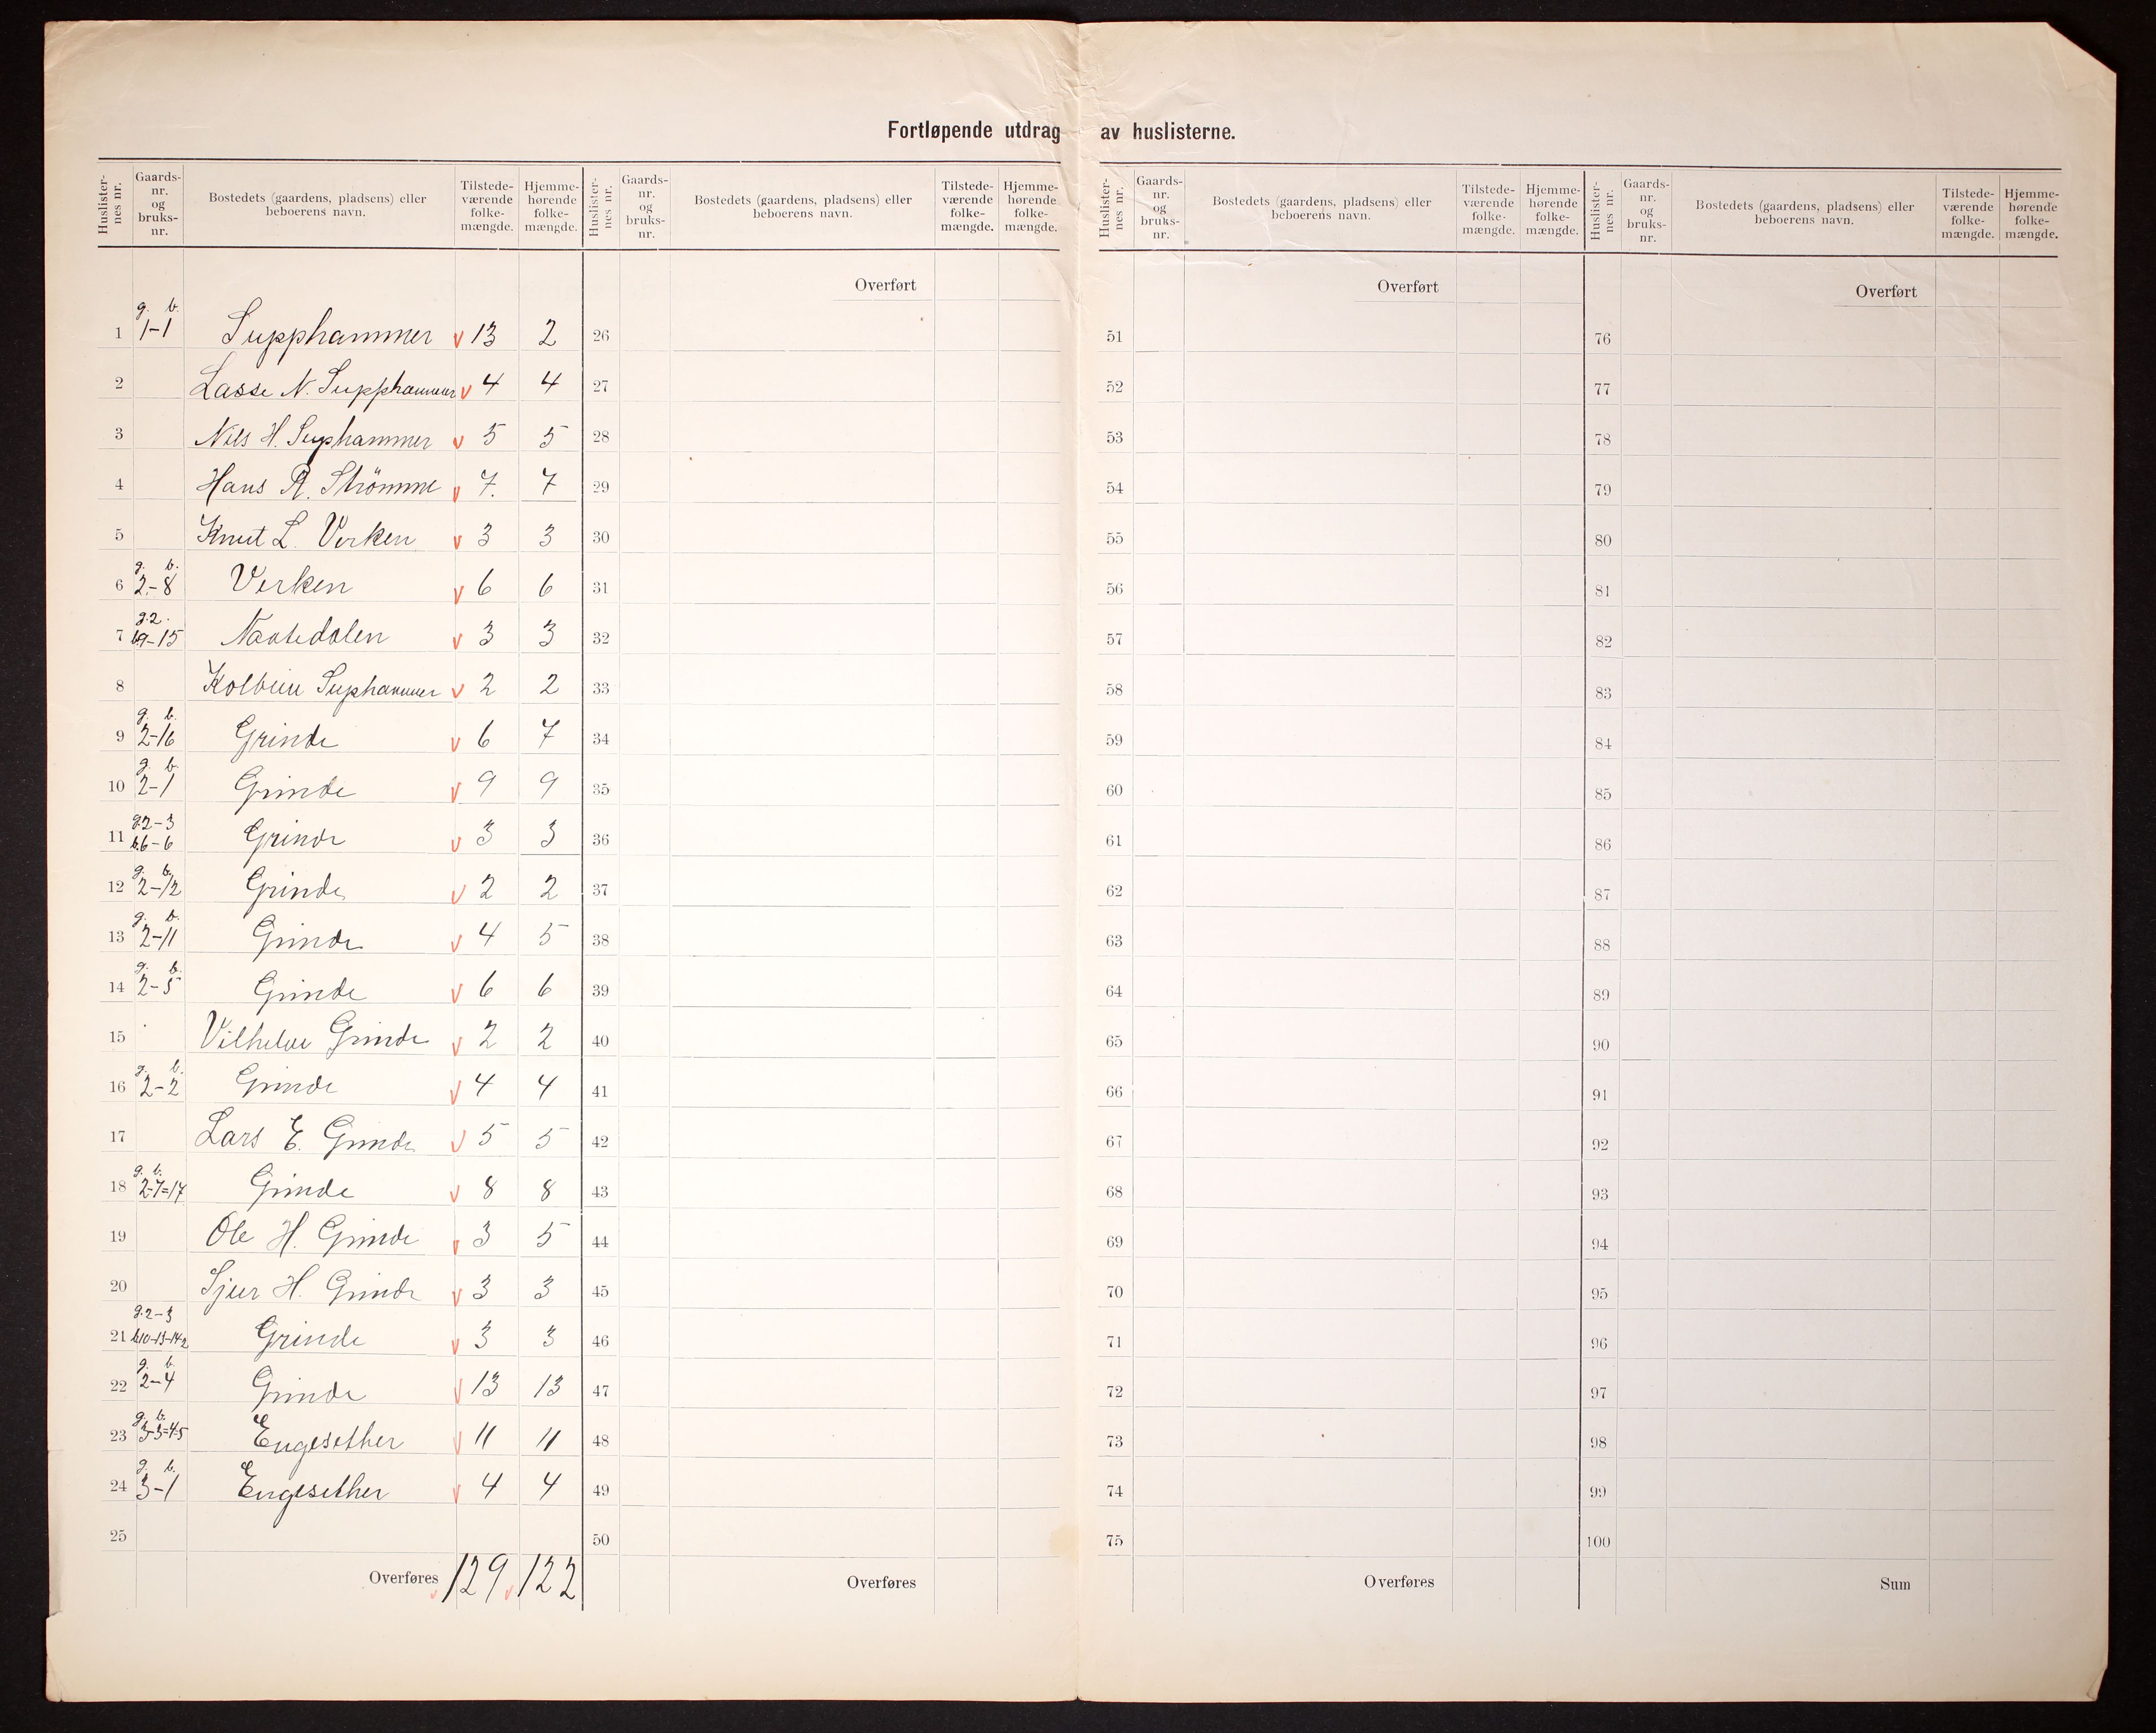 Fortløpende utdrag av huslisterne.
Huslisternes nr. Gaards-nr. og bruks-nr. Bostedets (gaardens, pladsens) eller beboerens navn. Tilstedeværende folkemængde. Hjemmehørende folkemængde. Huslisternes nr. Gaards-nr. og bruks-nr. Bostedets (gaardens, pladsens) eller beboerens navn. Tilstedeværende folkemængde. Hjemmehørende folkemængde. Huslisternes nr. Gaards-nr. og bruks-nr. Bostedets (gaardens, pladsens) eller beboerens navn. Tilstedeværende folkemængde. Hjemmehørende folkemængde. Huslisternes nr. Gaards-nr. og bruks-nr. Bostedets (gaardens, pladsens) eller beboerens navn. Tilstedeværende folkemængde. Hjemmehørende folkemængde.
Overført Overført Overført
1 g. b. 1-1 Supphammer v 13 2 26 51 76
2 Lasse N. Supphammer v 4 4 27 52 77
3 Nils H. Suphammer v 5 5 28 53 78
4 Hans R. Strömme v 7. 7 29 54 79
5 Knut L. Virken v 3 3 30 55 80
6 g. b. 2-8 Virken v 6 6 31 56 81
7 g.2. b9-15 Naatedalen v 3 3 32 57 82
8 Kolbein Suphammer v 2 2 33 58 83
9 g. b. 2-16 Grinde v 6 7 34 59 84
10 g. b. 2-1 Grinde v 9 9 35 60 85
11 g.2-3 b.6-6 Grinde v 3 3 36 61 86
12 g. b. 2-12 Grinde v 2 2 37 62 87
13 g. b. 2-11 Grinde v 4 5 38 63 88
14 g. b. 2-5 Grinde v 6 6 39 64 89
15 Vilhelm Grinde v 2 2 40 65 90
16 g. b. 2-2 Grinde v 4 4 41 66 91
17 Lars E. Grinde v 5 5 42 67 92
18 g. b. 2-7=17 Grinde v 8 8 43 68 93
19 Ole H. Grinde v 3 5 44 69 94
20 Sjur H. Grinde v 3 3 45 70 95
21 g.2-3 b.10-13-14-2 Grinde v 3 3 46 71 96
22 g. b. 2-4 Grinde v 13 13 47 72 97
23 g. b. 3-3=4-5 Engesether v 11 11 48 73 98
24 g. b. 3-1 Engesether v 4 4 49 74 99
25 50 75 100
Overføres v 129 v 122 Overføres Overføres Sum